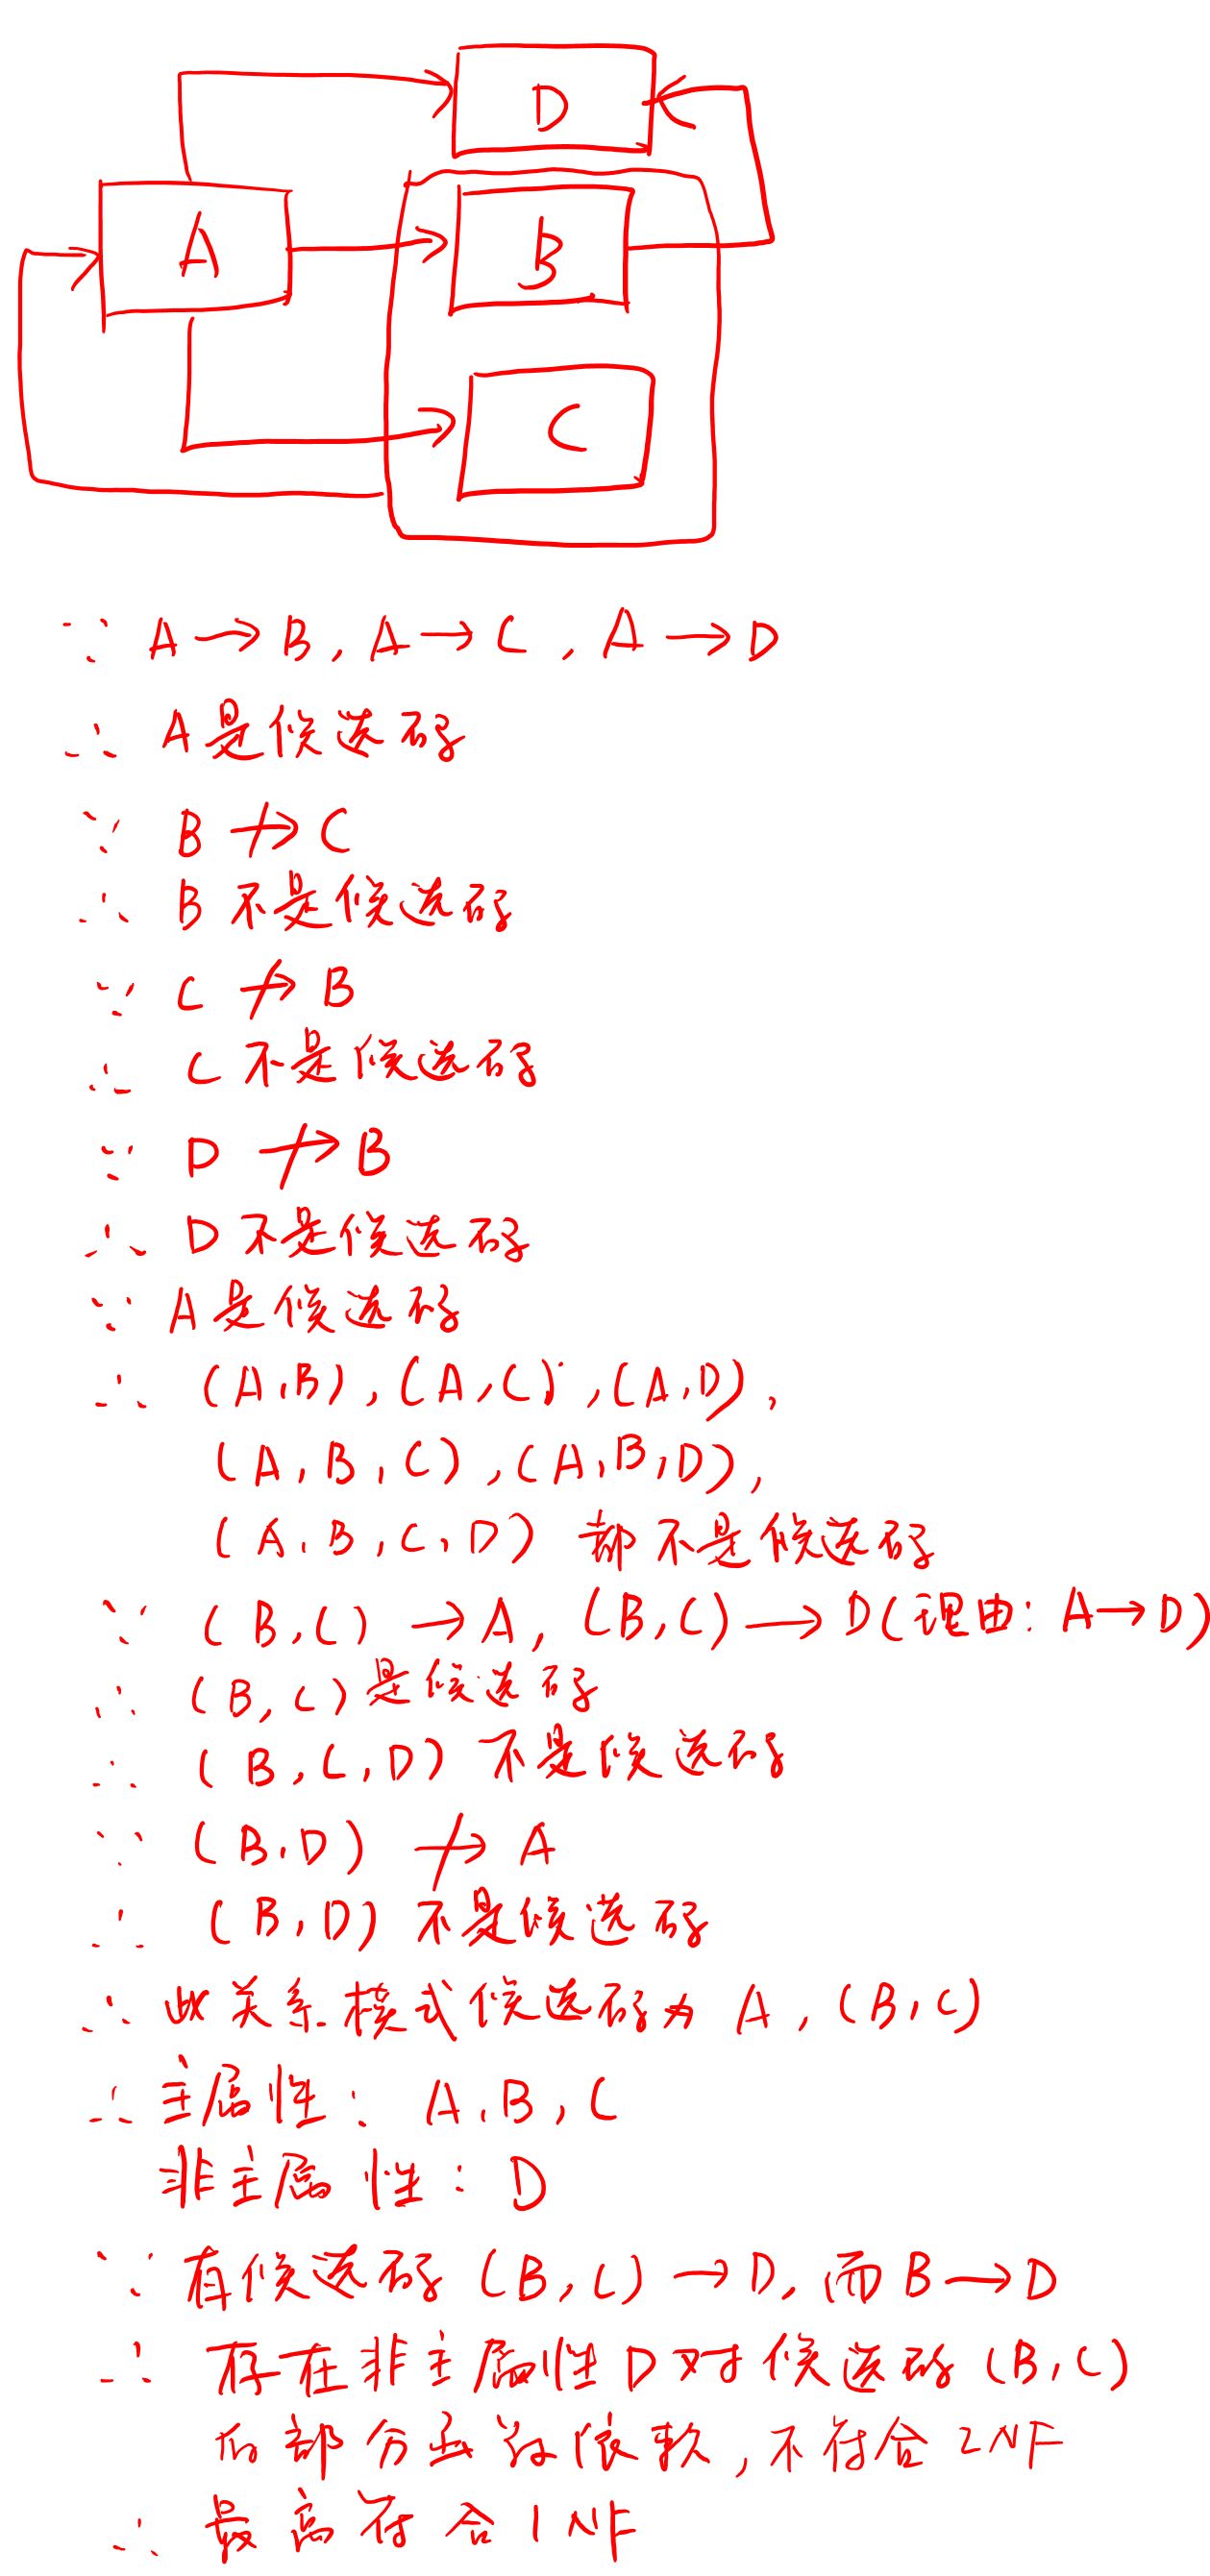 D
A
B
C
∵ A→B, A→C, A→D
∴ A是候选码
∵ B↛C
∴ B不是候选码
∵ C↛B
∴ C不是候选码
∵ D↛B
∴ D不是候选码
∵ A是候选码
∴ (A,B),(A,C),(A,D),
(A,B,C),(A,B,D),
(A,B,C,D)都不是候选码
∵ (B,C)→A, (B,C)→D(理由: A→D)
∴ (B,C)是候选码
∴ (B,C,D)不是候选码
∵ (B,D)↛A
∴ (B,D)不是候选码
∴ 此关系模式候选码为A,(B,C)
∴ 主属性: A,B,C
非主属性: D
∵ 有候选码(B,C)→D, 而B→D
∴ 存在非主属性D对候选码(B,C)
的部分函数依赖,不符合2NF
∴ 最高符合1NF